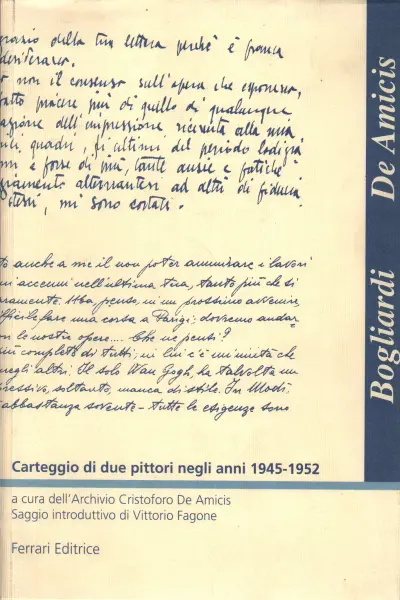 grazio della tua lettera perché è franca
desideravo.
o non il consenso sull'opera che esponevo,
fatto piacere più di quello di qualunque
azione dell'impressione ricevuta alla mia
quadri, gli ultimi del periodo
e forse di più, tante ansie e fatiche
alternantesi ad altri di fiducia
stessi, mi sono costati.
to anche a me il non poter ammirare i lavori
accenni nell'ultima tua, tanto più che si
ramente. Ma, penso, in un prossimo avvenire,
fare una corsa a Parigi; dovremo andar
con le nostre opere.... Che ne pensi?
più completo di tutti; in lui c'è un'unità che
negli altri. Il solo Van Gogh, ha talvolta un
pressivo, soltanto, manca di stile. In Modi:
abbastanza sovente - tutte le esigenze sono
Bogliardi De Amicis
Carteggio di due pittori negli anni 1945-1952
a cura dell'Archivio Cristoforo De Amicis
Saggio introduttivo di Vittorio Fagone
Ferrari Editrice